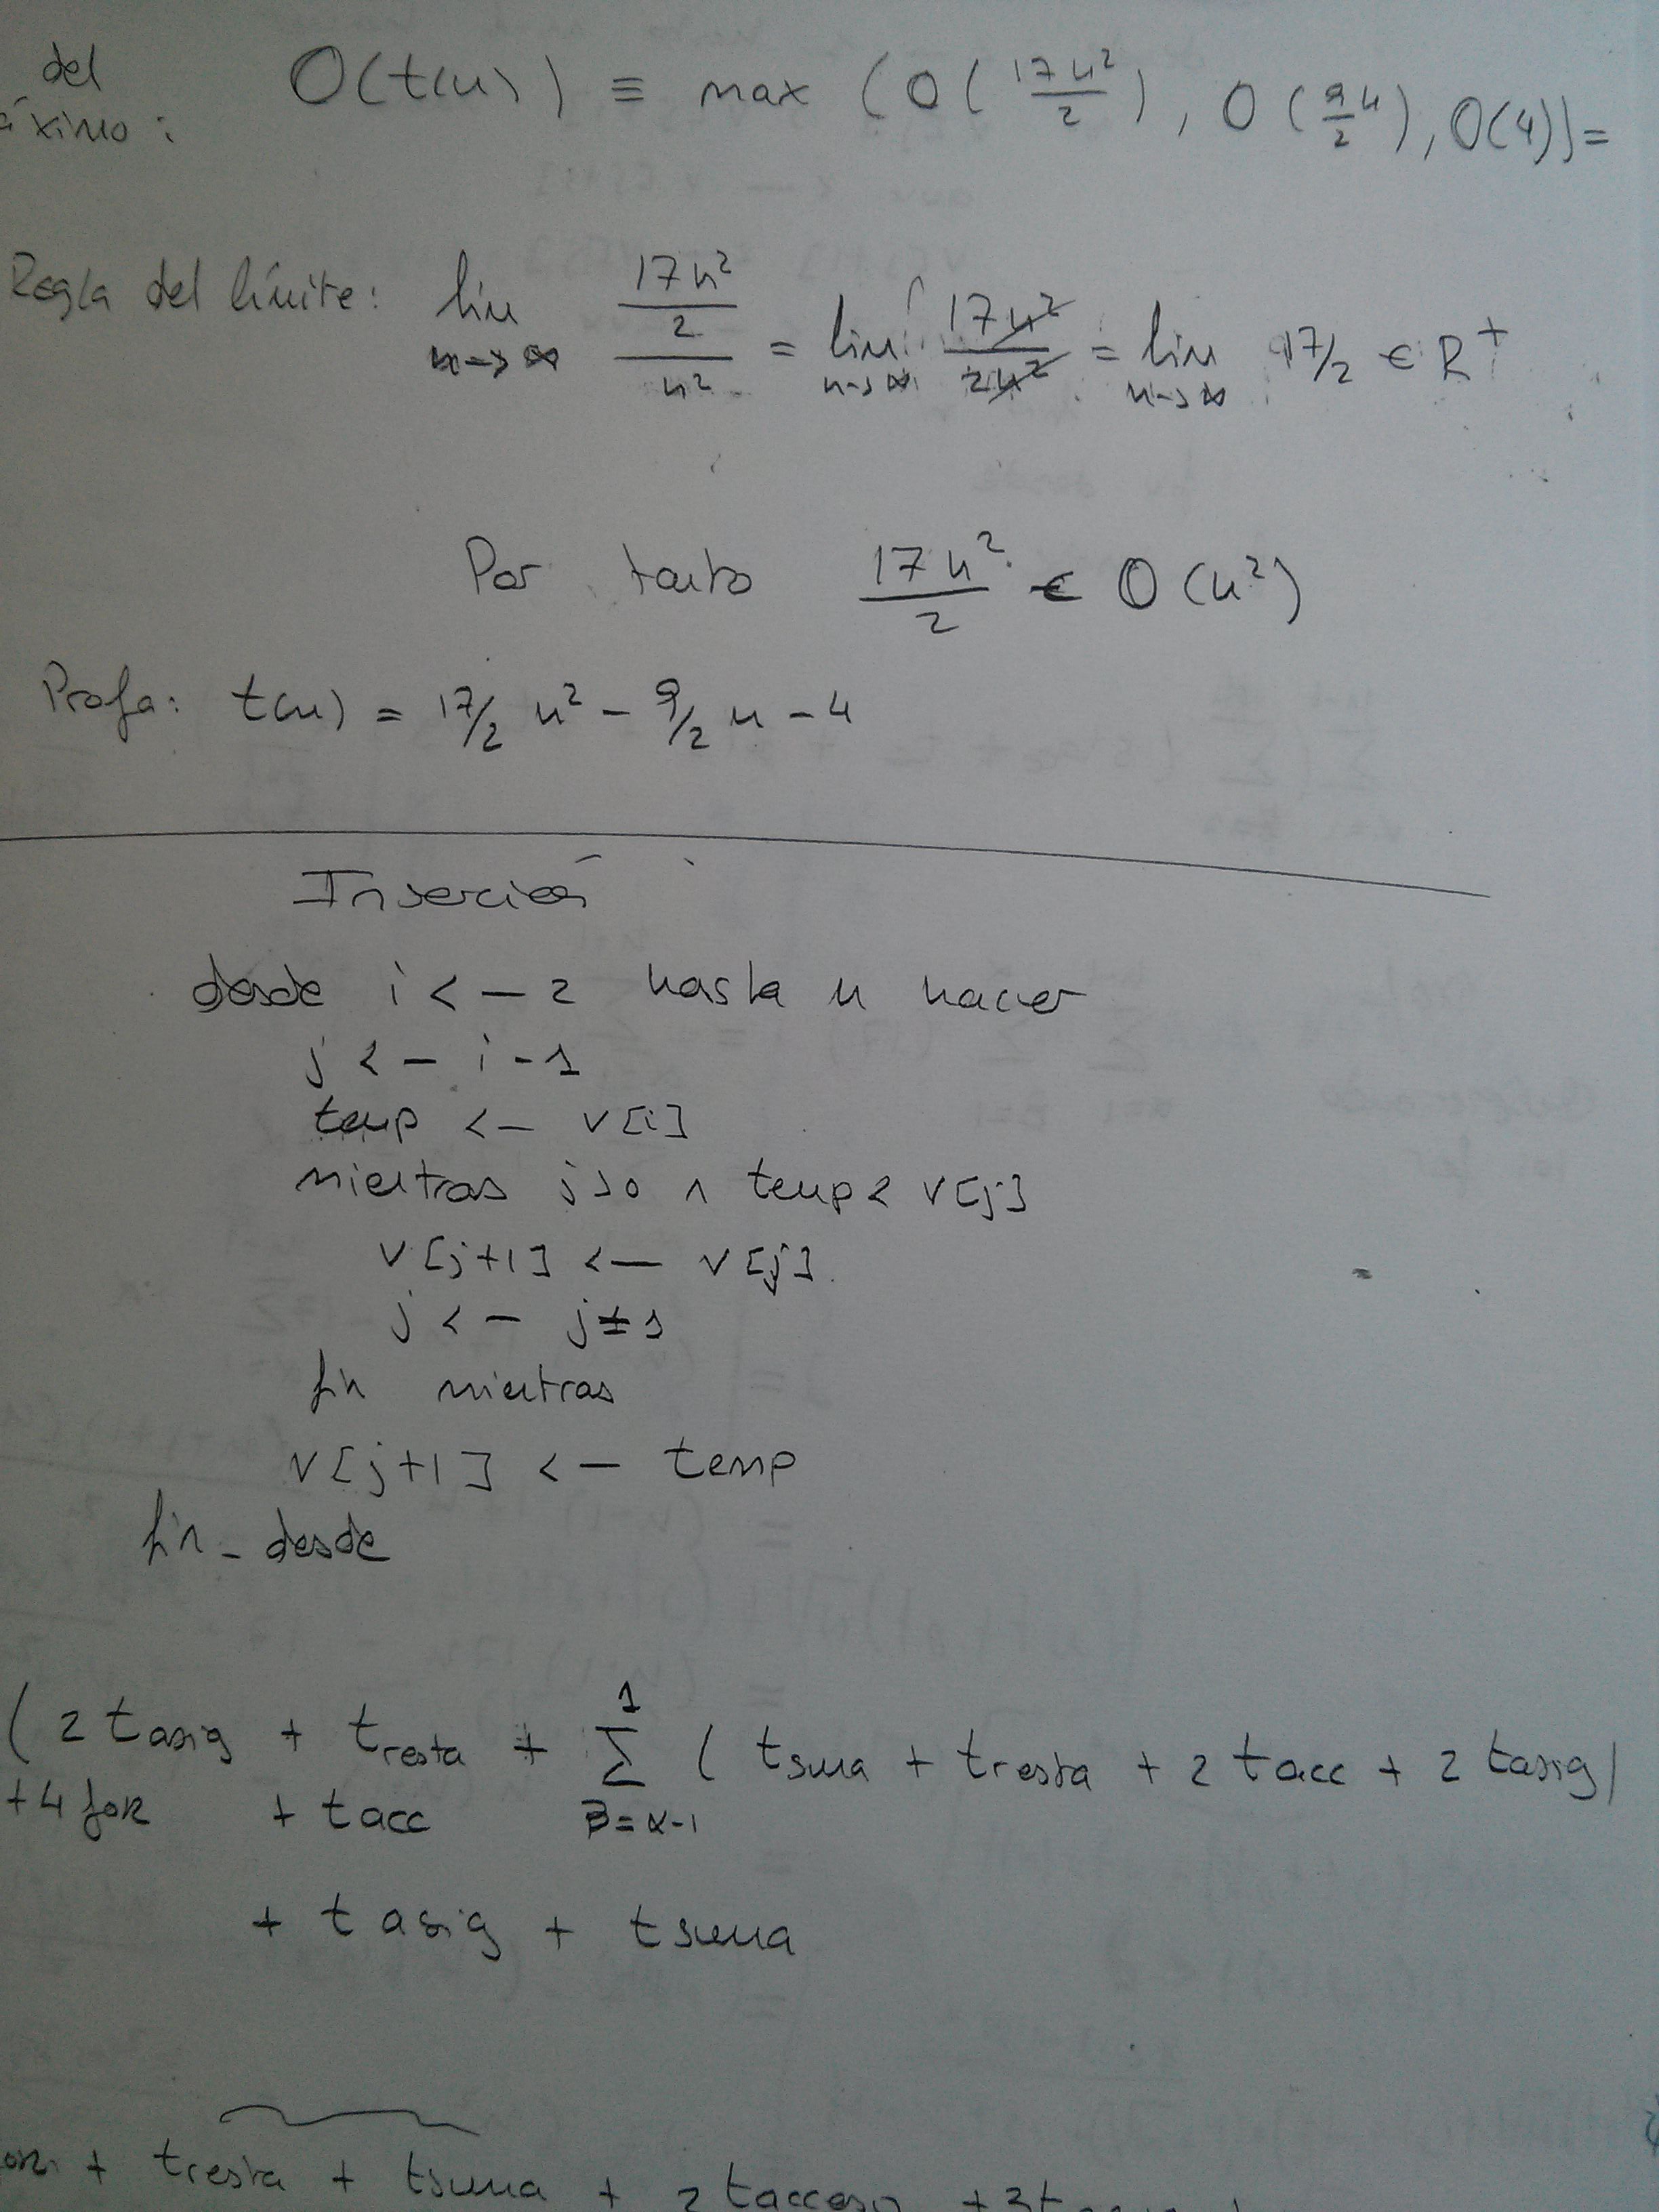 del
áximo: O(t(n)) ≡ max (O(17n²/2), O(9/2 n), O(4)) =
Regla del límite: lim n->∞ (17n²/2)/n² = lim n->∞ 17n²/2n² = lim n->∞ 17/2 ∈ R⁺
Por tanto 17n²/2 ∈ O(n²)
Profa: t(n) = 17/2 n² - 9/2 n - 4
Inserción
desde i <- 2 hasta n hacer
j <- i-1
temp <- v[i]
mientras j>0 ∧ temp < v[j]
v[j+1] <- v[j]
j <- j-1
fin mientras
v[j+1] <- temp
fin_desde
(2 tasig + tresta + Σ β=α-1 1 (tsuma + tresta + 2 tacc + 2 tasig)
+4 for + tacc
+ tasig + tsuma
+ tresta + tsuma + 2 tacceso